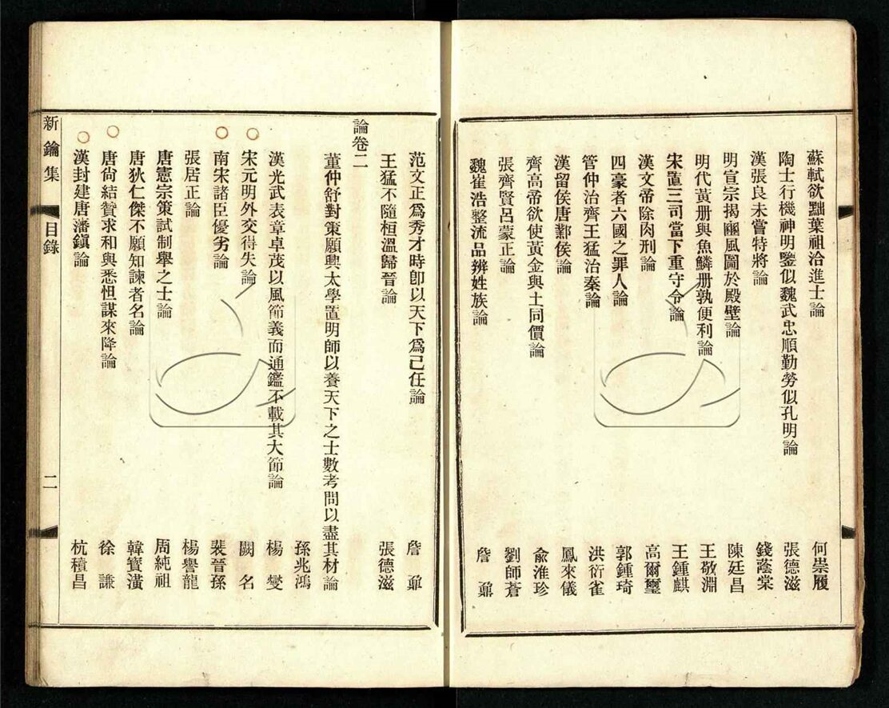 蘇軾欲黜葉祖洽進士論 何崇履
陶士行機神明鑒似魏武忠順勤勞似孔明論 張德滋
漢張良未嘗特將論 錢蔭棠
明宣宗揭豳風圖於殿壁論 陳廷昌
明代黃册與魚鱗册孰便利論 王敬淵
宋置三司當下重守令論 王鍾麒
漢文帝除肉刑論 高爾璽
四豪者六國之罪人論 郭鍾琦
管仲治齊王猛治秦論 洪衍雀
漢留侯唐鄴侯論 鳳來儀
齊高帝欲使黃金與土同價論 俞淮珍
張齊賢呂蒙正論 劉師蒼
魏崔浩整流品辨姓族論 詹鼐
范文正爲秀才時卽以天下爲己任論 詹鼐
王猛不隨桓溫歸晉論 張德滋
論卷二
董仲舒對策願興太學置明師以養天下之士數考問以盡其材論
孫兆鴻
漢光武表章卓茂以風節義而通鑑不載其大節論 楊燮
宋元明外交得失論 闕名
南宋諸臣優劣論 裴晉孫
張居正論 楊譽龍
唐憲宗策試制舉之士論 周純祖
唐狄仁傑不願知諫者名論 韓寶潢
唐尙結贊求和與悉怛謀來降論 徐謙
漢封建唐藩鎭論 杭積昌
新鑰集 目錄 二